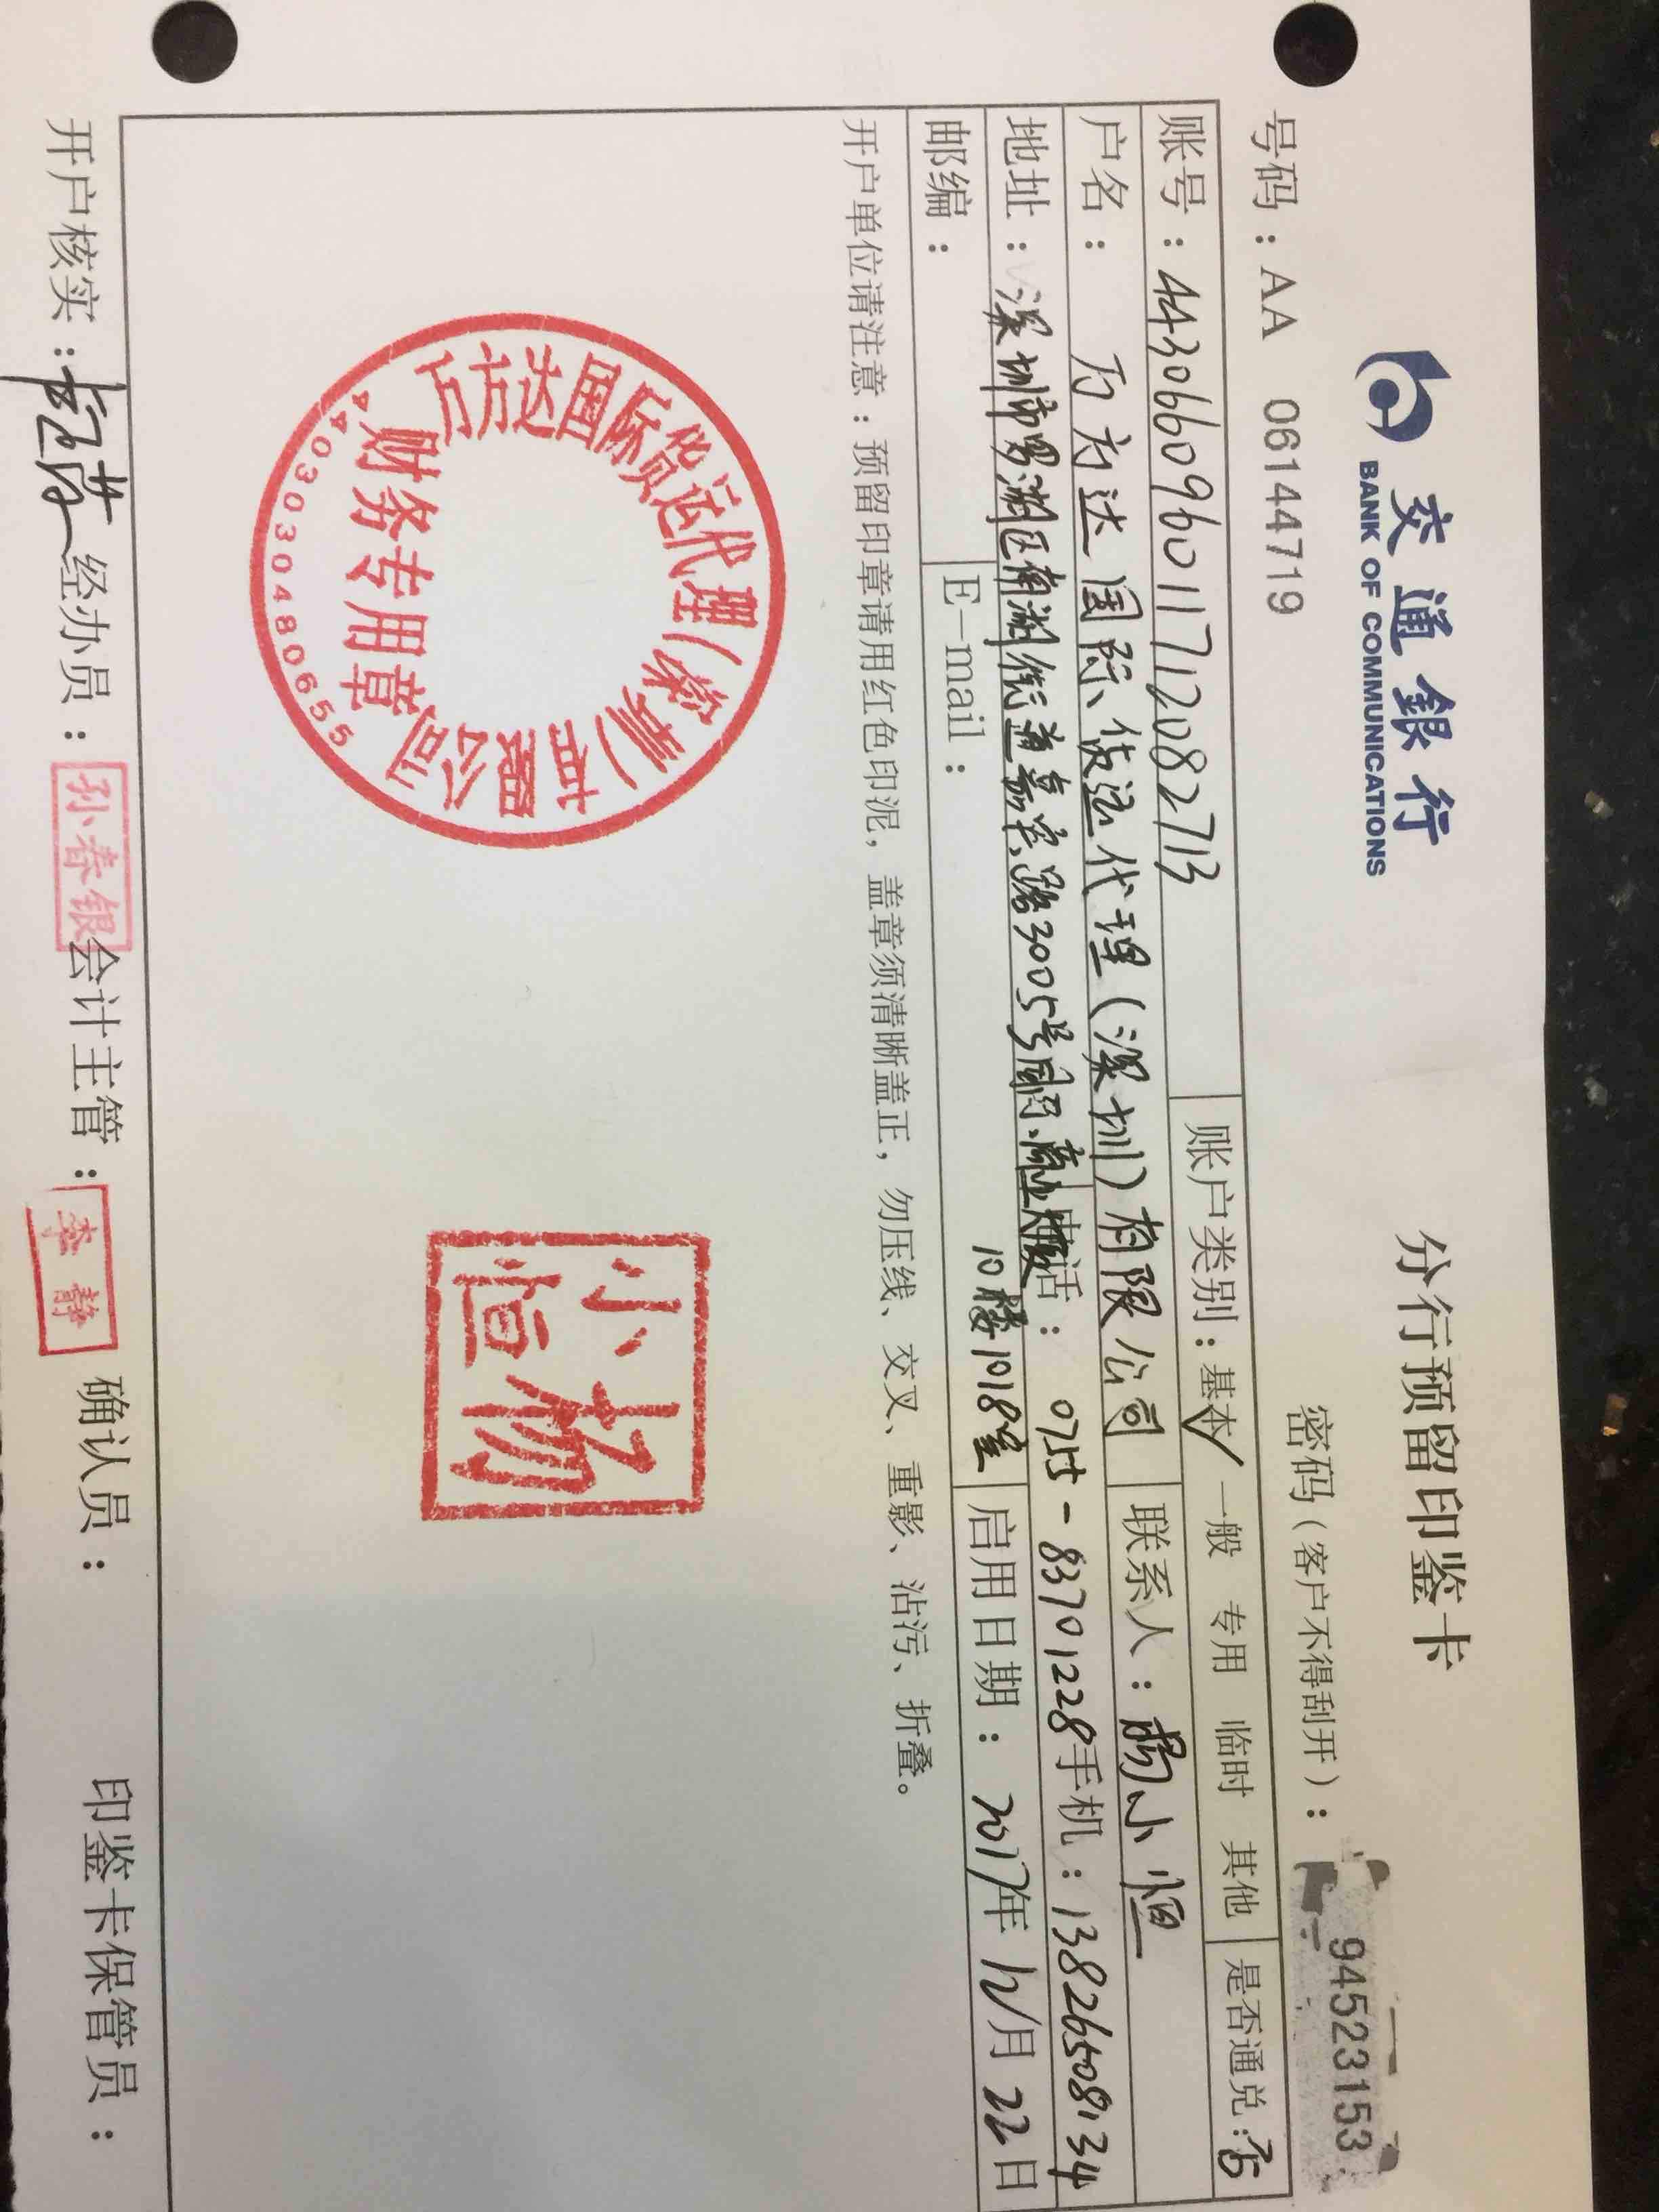 交通銀行
BANK OF COMMUNICATIONS
分行预留印鉴卡
号码：AA 06144719
密码（客户不得刮开）：
94523153
账号：443066096011712082713
账户类别：基本√ 一般 专用 临时 其他
是否通兑：否
户名：万方达国际货运代理（深圳）有限公司
联系人：杨小恒
地址：深圳市罗湖区南湖街道嘉宾路3005号国际商业大厦
10楼1018室
电话：0755-83701228
手机：13826508134
邮编：
E-mail：
启用日期：2017年12月22日
开户单位请注意：预留印章请用红色印泥，盖章须清晰盖正，勿压线、交叉、重影、沾污、折叠。
万方达国际货运代理（深圳）有限公司
财务专用章
4403030480655
杨小恒
开户核实：
经办员：孙春银
会计主管：李静
确认员：
印鉴卡保管员：